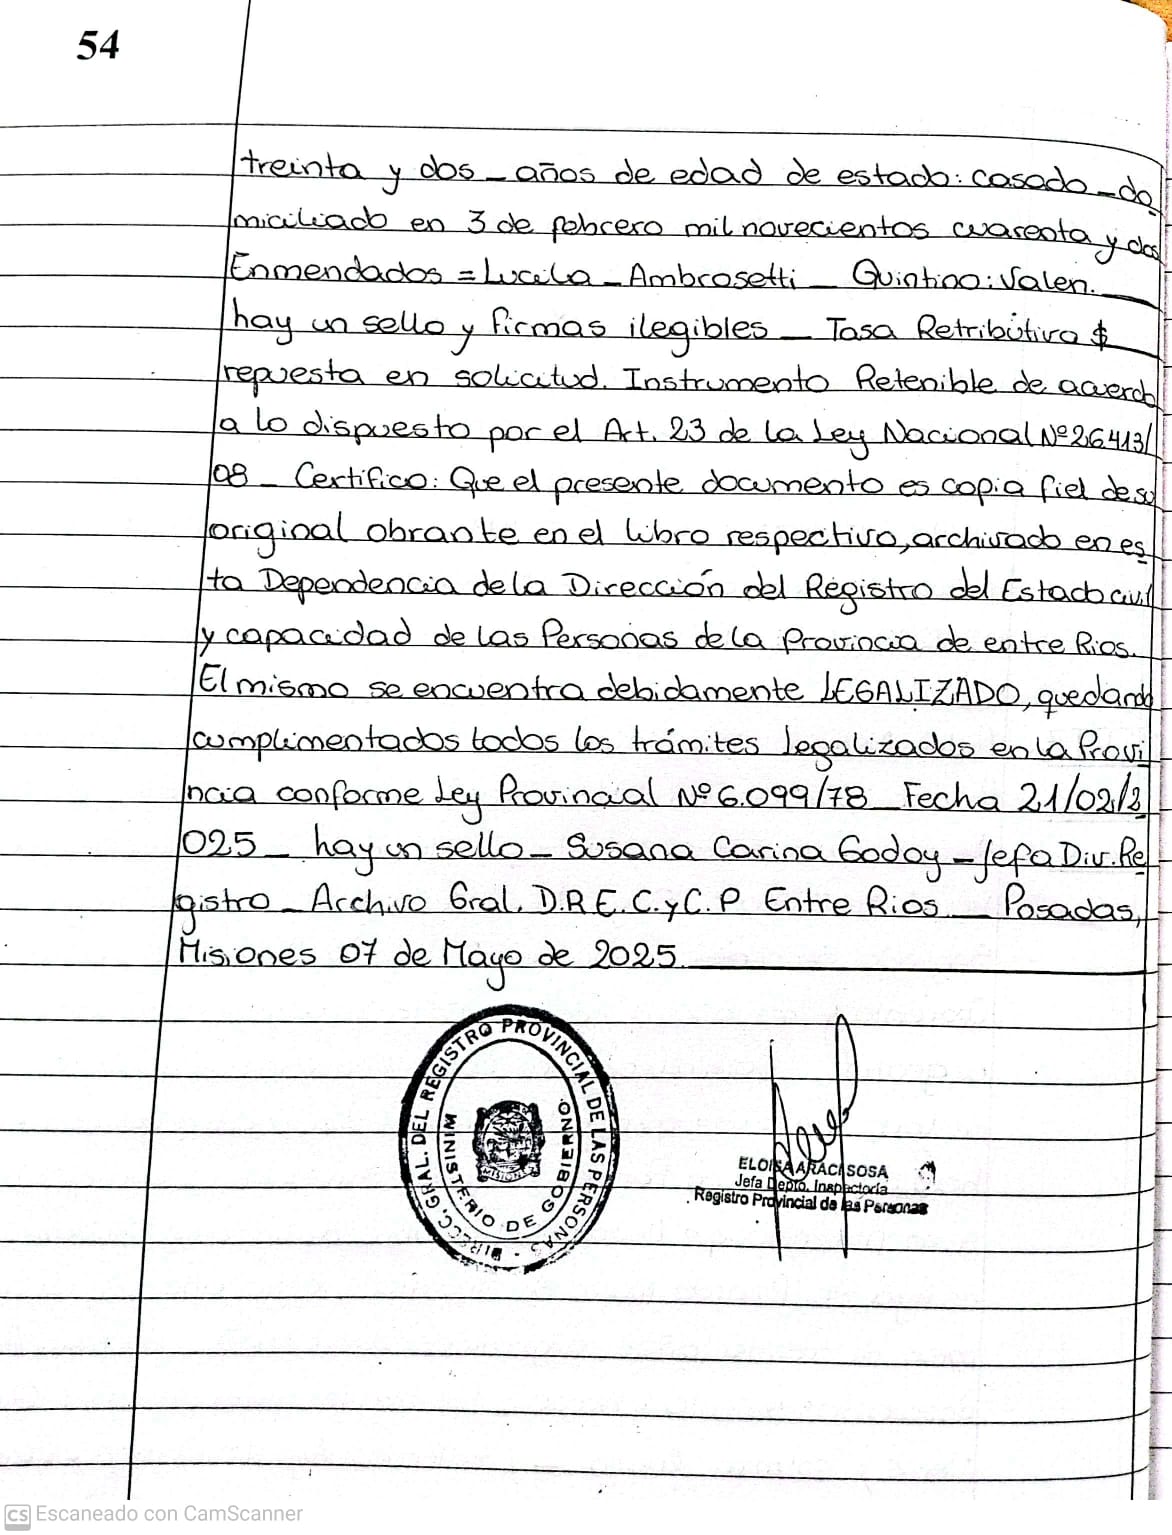 54
treinta y dos _ años de edad de estado: casado _ do
miciliado en 3 de febrero mil novecientos cuarenta y dos
Enmendados = Lucila _ Ambrosetti _ Quintino: Valen. _
hay un sello y firmas ilegibles _ Tasa Retributiva $
repuesta en solicitud. Instrumento Retenible de acuerdo
a lo dispuesto por el Art. 23 de la Ley Nacional Nº 26413/
08 _ Certifico: Que el presente documento es copia fiel de su
original obrante en el libro respectivo, archivado en es
ta Dependencia de la Dirección del Registro del Estado civil
y capacidad de las Personas de la Provincia de entre Rios.
El mismo se encuentra debidamente LEGALIZADO, quedando
cumplimentados todos los trámites legalizados en la Provi
ncia conforme Ley Provincial Nº 6.099/78 _ Fecha 21/02/2
025 _ hay un sello _ Susana Carina Godoy _ Jefa Div. Re
gistro _ Archivo Gral. D.R.E.C.yC.P Entre Rios _ Posadas,
Misiones 07 de Mayo de 2025. _
DIRECC. GRAL. DEL REGISTRO PROVINCIAL DE LAS PERSONAS
MINISTERIO DE GOBIERNO
MISIONES
ELOISA ARACI SOSA
Jefa Depto. Inspectoría
Registro Provincial de las Personas
CS Escaneado con CamScanner